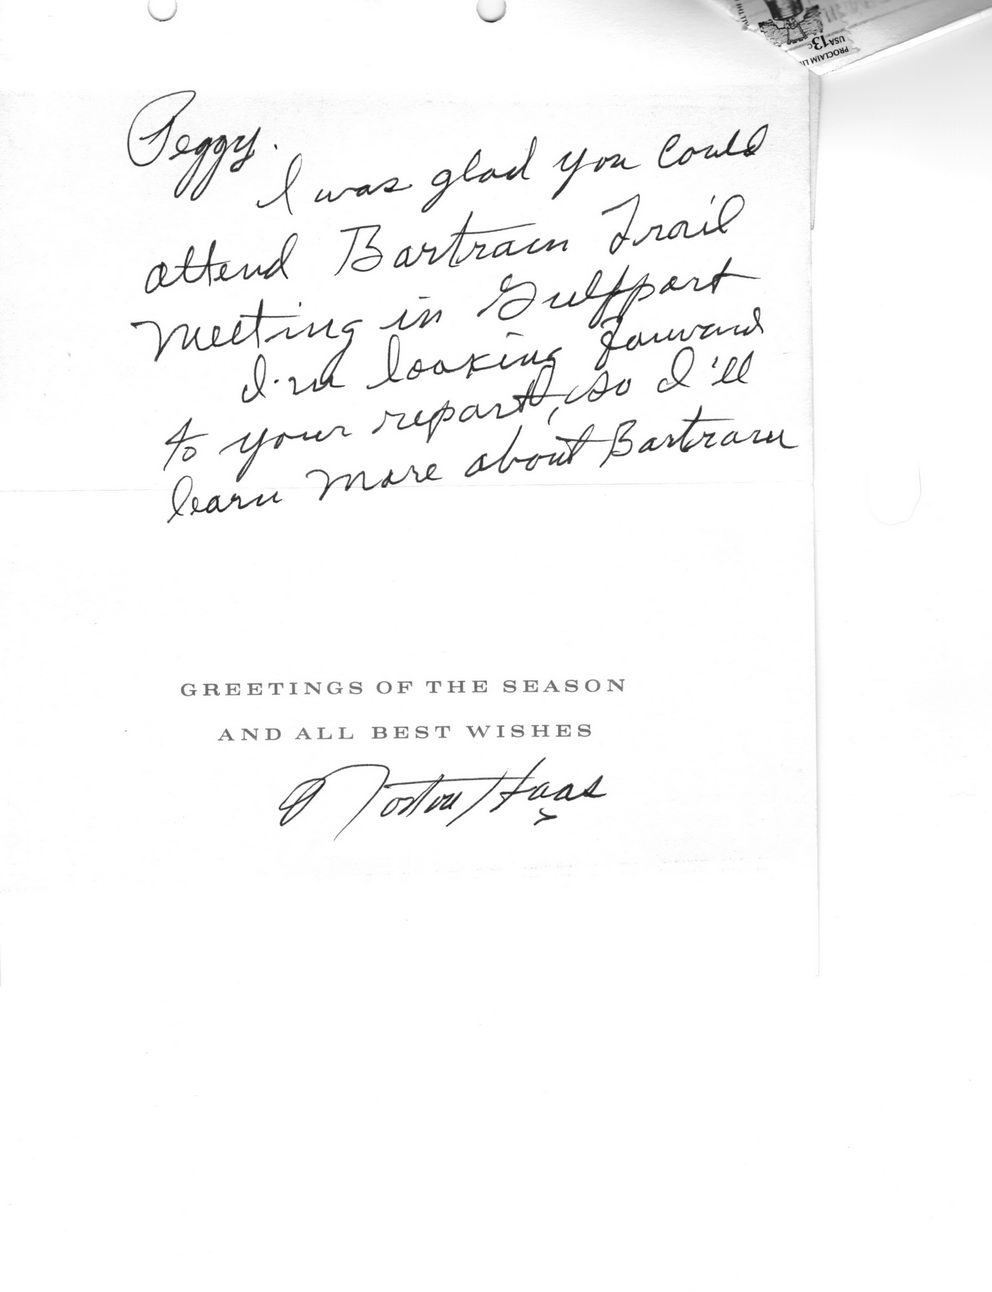 Peggy.
I was glad you could
attend Bartram Trail
Meeting in Gulfport
I'm looking forward
to your report, so I'll
learn more about Bartram
GREETINGS OF THE SEASON
AND ALL BEST WISHES
Haas
USA 13c
PROCLAIM LI